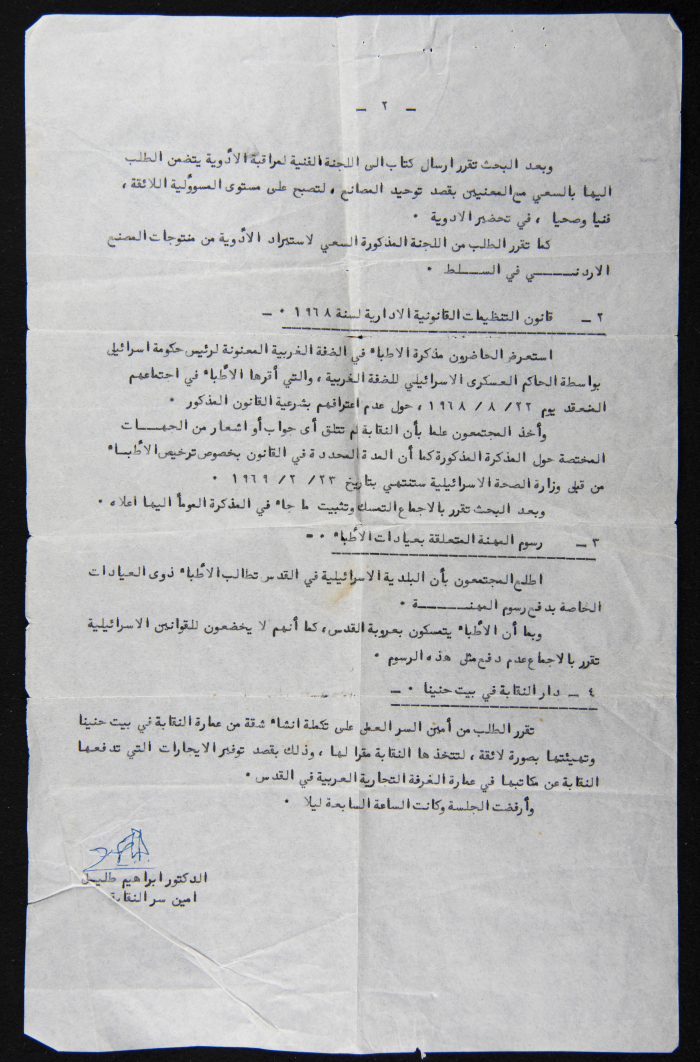 - ٢ -
وبعد البحث تقرر ارسال كتاب الى اللجنة الفنية لمراقبة الأدوية يتضمن الطلب
اليها بالسعي مع المعنيين بقصد توحيد المصانع ، لتصبح على مستوى المسوؤلية اللائقة ،
فنيا وصحيا ، في تحضير الادوية ٠
كما تقرر الطلب من اللجنة المذكورة السعي لاستيراد الأدوية من منتوجات المصنع
الاردنـــــي في الســـلط ٠
٢ - قانون التنظيمات القانونية الادارية لسنة ١٩٦٨ ٠ -
استعرض الحاضرون مذكرة الاطباء في الضفة الغربية المعنونة لرئيس حكومة اسرائيل
بواسطة الحاكم العسكرى الاسرائيلي للضفة الغربية ، والتي أقرها الأطباء في اجتماعهم
المنعقد يوم ٢٢/ ٨/ ١٩٦٨ ، حول عدم اعترافهم بشرعية القانون المذكور ٠
وأخذ المجتمعون علما بأن النقابة لم تتلق أى جواب أو اشعار من الجهـــات
المختصة حول المذكرة المذكورة كما أن المدة المحددة في القانون بخصوص ترخيص الأطبـاء
من قبل وزارة الصحة الاسرائيلية ستنتهي بتاريخ ٢٣/ ٢/ ١٩٦٩ ٠
وبعد البحث تقرر بالاجماع التمسك وتثبيت ما جاء في المذكرة المومأ اليها اعلاه ٠
٣ - رسوم المهنة المتعلقة بعيادات الأطباء ٠ -
اطلع المجتمعون بأن البلدية الاسرائيلية في القدس تطالب الأطباء ذوى العيادات
الخاصة بدفع رسوم المهنـــــة ٠
وبما أن الأطباء يتمسكون بعروبة القدس ، كما أنهم لا يخضعون للقوانين الاسرائيلية
تقرر بالاجماع عدم دفع مثل هذه الرسوم ٠
٤ - دار النقابة في بيت حنينا ٠ -
تقرر الطلب من أمين السر العمل على تكملة انشاء شقة من عمارة النقابة في بيت حنينا
وتهيئتها بصورة لائقة ، لتتخذها النقابة مقرا لها ، وذلك بقصد توفير الايجارات التي تدفعها
النقابة عن مكاتبها في عمارة الغرفة التجارية العربية في القدس ٠
وأرفضت الجلسة وكانت الساعة السابعة ليلا ٠
الدكتور ابراهيم طليـل
امين سر النقابة